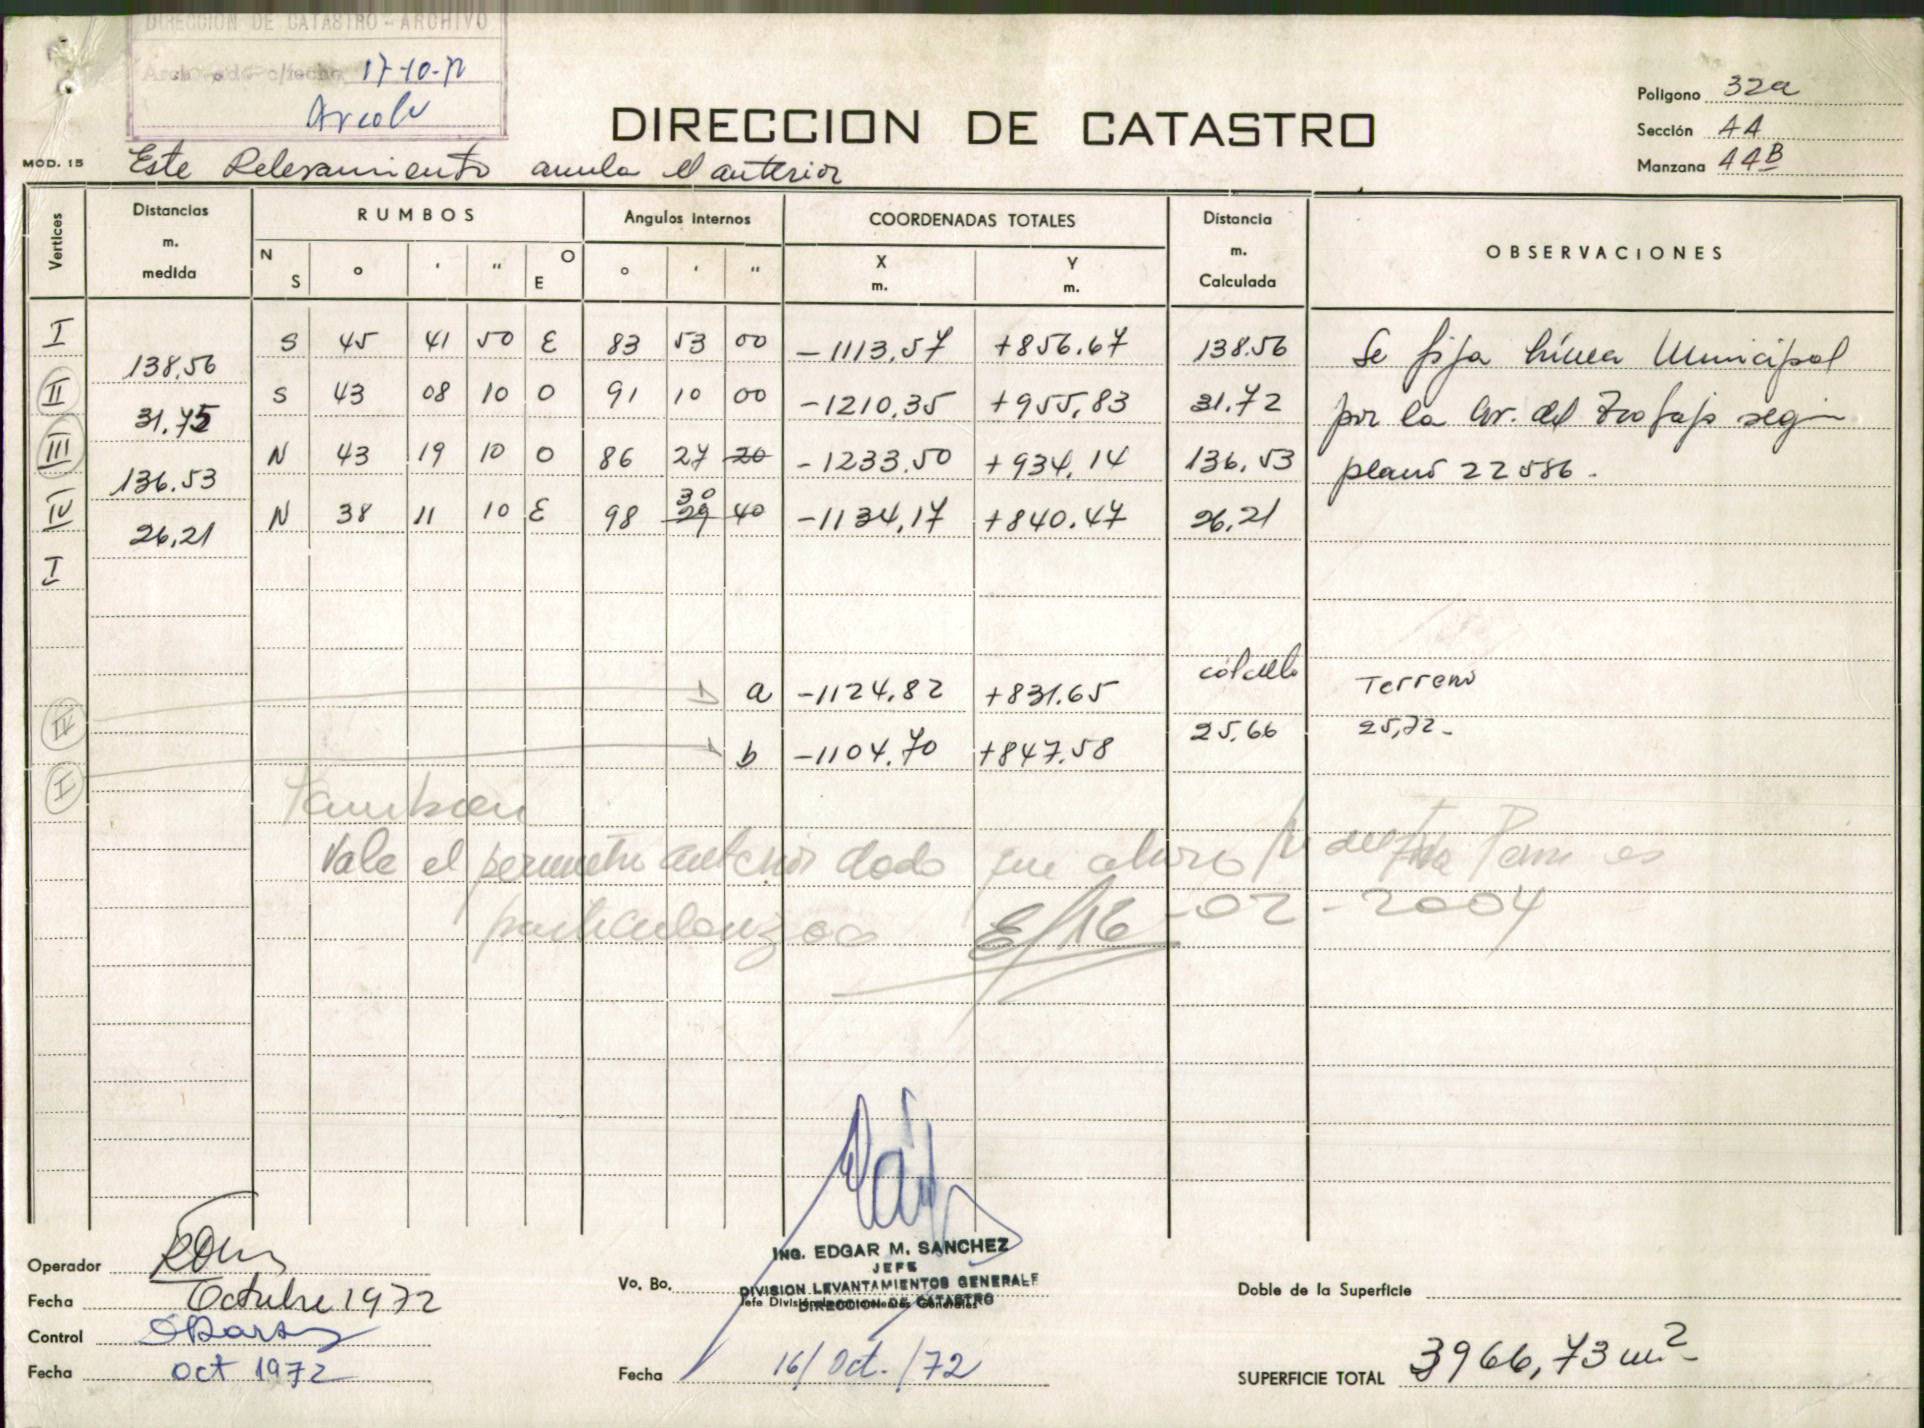 DIRECCION DE CATASTRO - ARCHIVO
17-10-72
DIRECCION DE CATASTRO
Poligono 32a
Sección 44
Manzana 44B
MOD. 15
Este Relevamiento anula el anterior
Vertices
Distancias m. medida
RUMBOS
Angulos Internos
COORDENADAS TOTALES
Distancia m. Calculada
OBSERVACIONES
N S ° ' " O E
° ' "
X m.
Y m.
I S 45 41 50 E 83 53 00 -1113,57 +856.67 138.56 Se fija Línea Municipal
138,56
II S 43 08 10 O 91 10 00 -1210,35 +955,83 31.72 por la Av. del Trabajo según
31,75
III N 43 19 10 O 86 27 20 -1233.50 +934,14 136,53 plano 22586.
136.53
IV N 38 11 10 E 98 30 29 40 -1134,17 +840.47 26,21
26,21
I
cálculo Terreno
a -1124,82 +831.65
IV 25,66 25,72-
b -1104,70 +847.58
I
También
Vale el perimetro anterior dado que ahora
16-02-2004
ING. EDGAR M. SANCHEZ
JEFE
DIVISION LEVANTAMIENTOS GENERALE
DIRECCION DE CATASTRO
Operador
Vo. Bo.
Doble de la Superficie
Fecha Octubre 1972
Control
Fecha oct 1972
Fecha 16/Oct./72
SUPERFICIE TOTAL 3966,73 m2